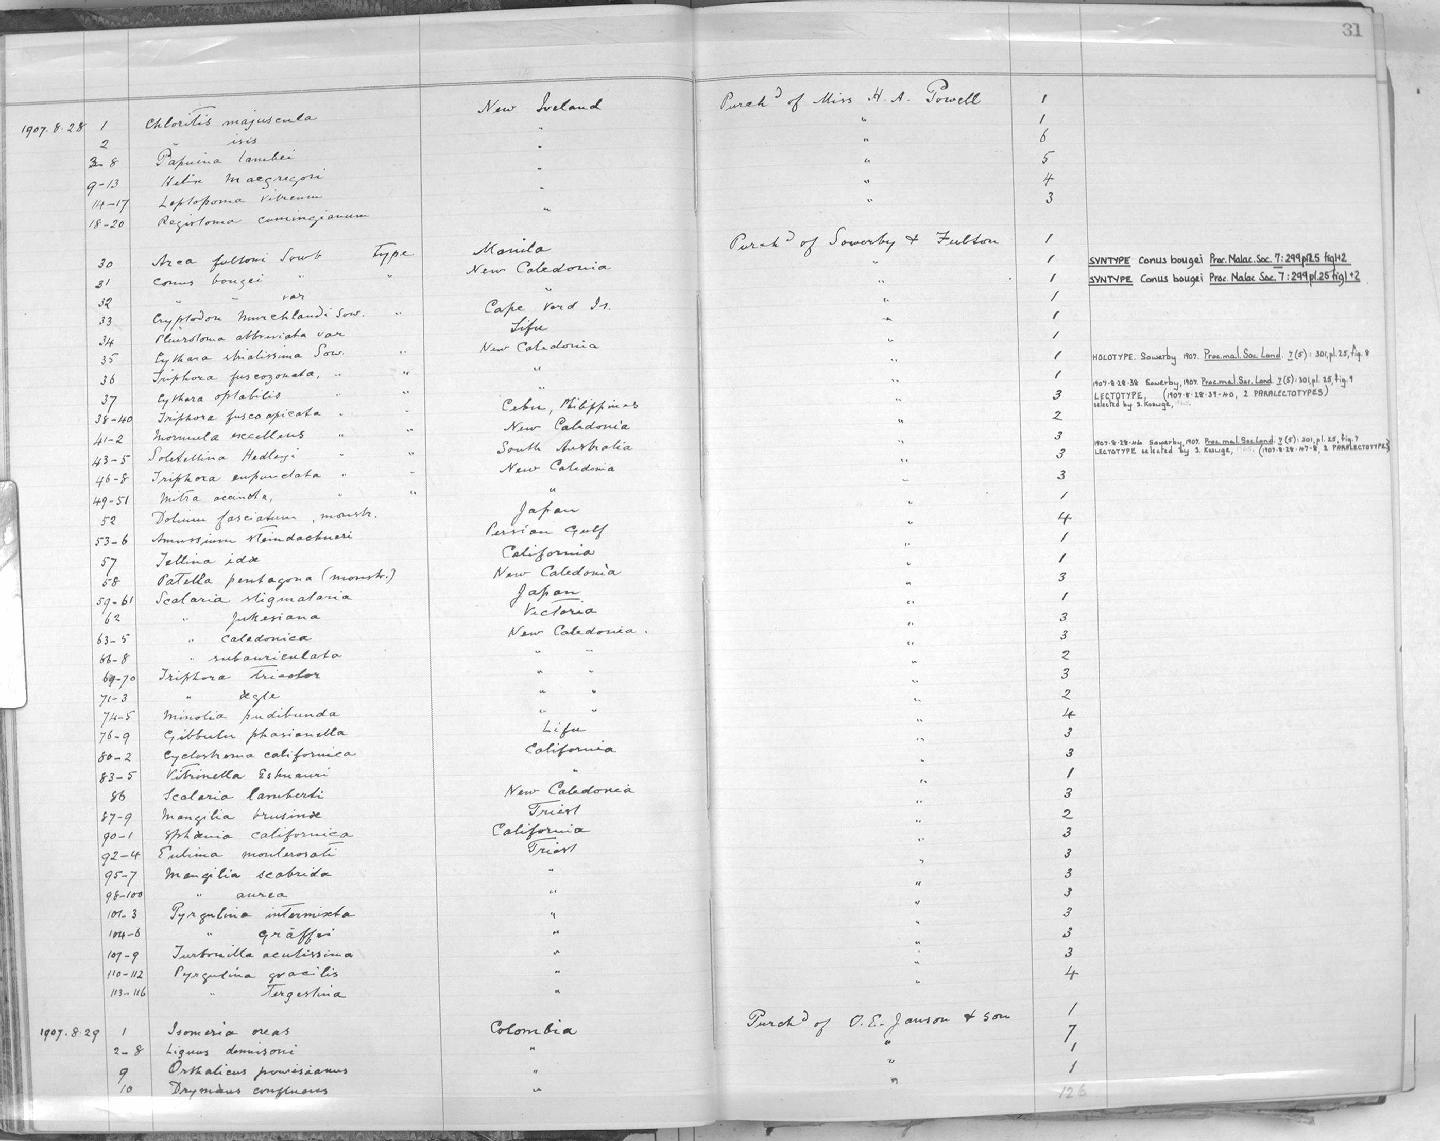 31
1907.8.28 1 Chloritis majuscula New Ireland Purchd of Miss H. A. Powell 1
2 " isis " " 1
3-8 Papuina lambei " " 6
9-13 Helix Macgregori " " 5
14-17 Leptopoma vitreum " " 4
18-20 Registoma cumingianum " " 3
30 Arca fultoni Sowb Type Manila Purchd of Sowerby & Fulton 1
31 Conus bougei " " New Caledonia " 1 SYNTYPE Conus bougei Proc. Malac. Soc. 7: 299 pl.25 fig 1+2
32 " " var " " 1 SYNTYPE Conus bougei Proc. Malac. Soc. 7: 299 pl.25 fig 1+2
33 Cryptodon Murchlandi Sow. " Cape Verd Is. " 1
34 Pleurotoma abbreviata var Lifu " 1
35 Cythara striatissima Sow. " New Caledonia " 1
36 Triphora fuscozonata, " " " " 1 HOLOTYPE. Sowerby 1907. Proc. mal. Soc. Lond. 7(5): 301, pl. 25, fig. 8
37 Cythara optabilis " " " 1
38-40 Triphora fuscoapicata " " Cebu, Philippines " 3 1907.8.28.38 Sowerby, 1907. Proc. mal. Soc. Lond. 7(5): 301, pl. 25, fig. 9
LECTOTYPE, (1907.8.28.39-40, 2 PARALECTOTYPES)
selected by S. Kosuge,
41-2 Mormula excellens " " New Caledonia " 2
43-5 Soletellina Hedleyi " " South Australia " 3
46-8 Triphora expunctata " New Caledonia " 3 1907.8.28.46 Sowerby, 1907. Proc. mal. Soc. Lond. 7(5): 301, pl. 25, fig. 7
LECTOTYPE selected by S. Kosuge, (1907.8.28.47-8, 2 PARALECTOTYPES)
49-51 Mitra " " " " 3
52 Dolium fasciatum, monstr. Japan " 1
53-6 Amussium steindachneri Persian Gulf " 4
57 Tellina idæ California " 1
58 Patella pentagona (monstr.) New Caledonia " 1
59-61 Scalaria stigmataria Japan " 3
62 " jukesiana Victoria " 1
63-5 " caledonica New Caledonia. " 3
66-8 " subauriculata " " " 3
69-70 Triphora tricolor " " " 2
71-3 " ægle " " " 3
74-5 Minolia pudibunda " " " 2
76-9 Gibbula phasianella Lifu " 4
80-2 Cyclostrema californica California " 3
83-5 Vitrinella Eshnauri " " 3
86 Scalaria lamberti New Caledonia " 1
87-9 Mangilia brusinæ Triest " 3
90-1 Sphænia californica California " 2
92-4 Eulima monterosati Triest " 3
95-7 Mangilia scabrida " " 3
98-100 " aurea " " 3
101-3 Pyrgulina intermixta " " 3
104-6 " Gräffei " " 3
107-9 Turbonilla acutissima " " 3
110-112 Pyrgulina gracilis " " 3
113-116 " Tergestina " " 4
1907.8.29 1 Isomeria oreas Colombia Purchd of O. E. Janson & Son 1
2-8 Liguus dennisoni " " 7
9 Orthalicus powisianus " " 1
10 Drymæus confluens " " 1
126